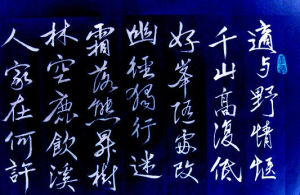 適与野情愜
千山高復低
好峯随處改
幽徑獨行迷
霜落熊昇樹
林空鹿飲溪
人家在何許